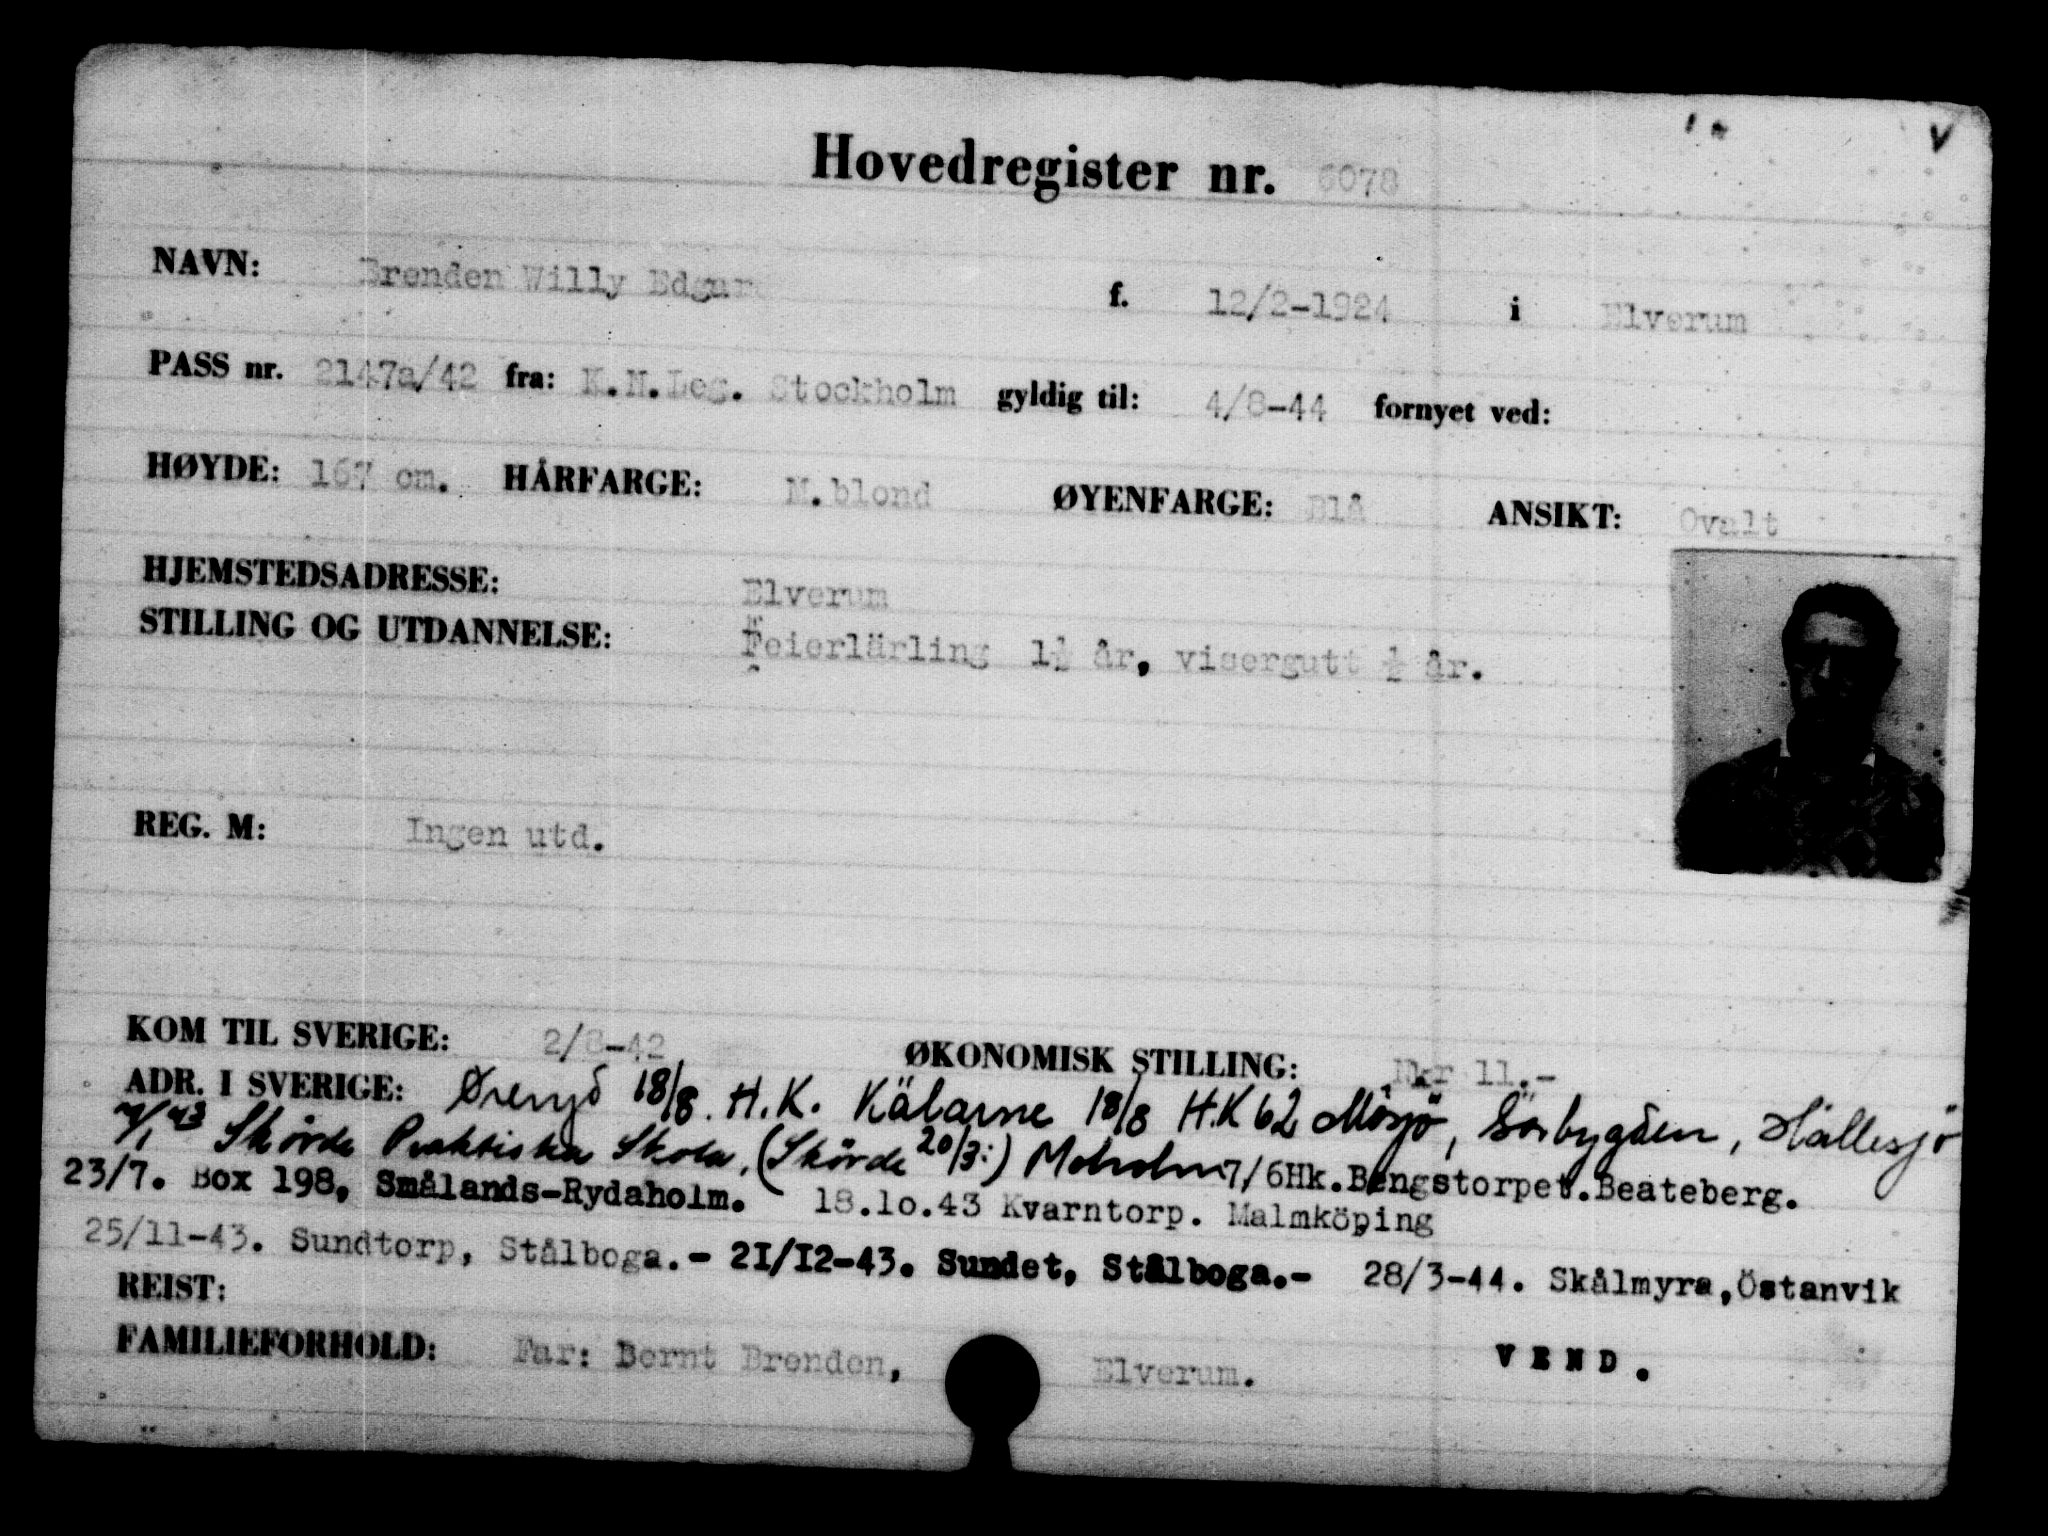 Hovedregister nr. 6078
NAVN: Brenden Willy Edgar f. 12/2-1924 i Elverum
PASS nr. 2147a/42 fra: K.N.Leg. Stockholm gyldig til: 4/8-44 fornyet ved:
HØYDE: 167 cm. HÅRFARGE: M.blond ØYENFARGE: Blå ANSIKT: Ovalt
HJEMSTEDSADRESSE: Elverum
STILLING OG UTDANNELSE: Feierlärling 1½ år, visergutt ½ år.
REG. M: Ingen utd.
KOM TIL SVERIGE: 2/8-42 ØKONOMISK STILLING: Nkr 11.-
ADR. I SVERIGE: 18/8. H.K. Kälarne 18/8 H.K 62 Mösjö, Sörbygden, Hällesjö
Skövde Praktiska Skola, (Skövde 20/3:) Moholm 7/6Hk.Bengstorpet.Beateberg.
23/7. Box 198, Smålands-Rydaholm. 18.10.43 Kvarntorp. Malmköping
25/11-43. Sundtorp, Stålboga.- 21/12-43. Sundet, Stålboga.- 28/3-44. Skålmyra,Östanvik
REIST:
FAMILIEFORHOLD: Far: Bernt Brenden, Elverum. VEND.